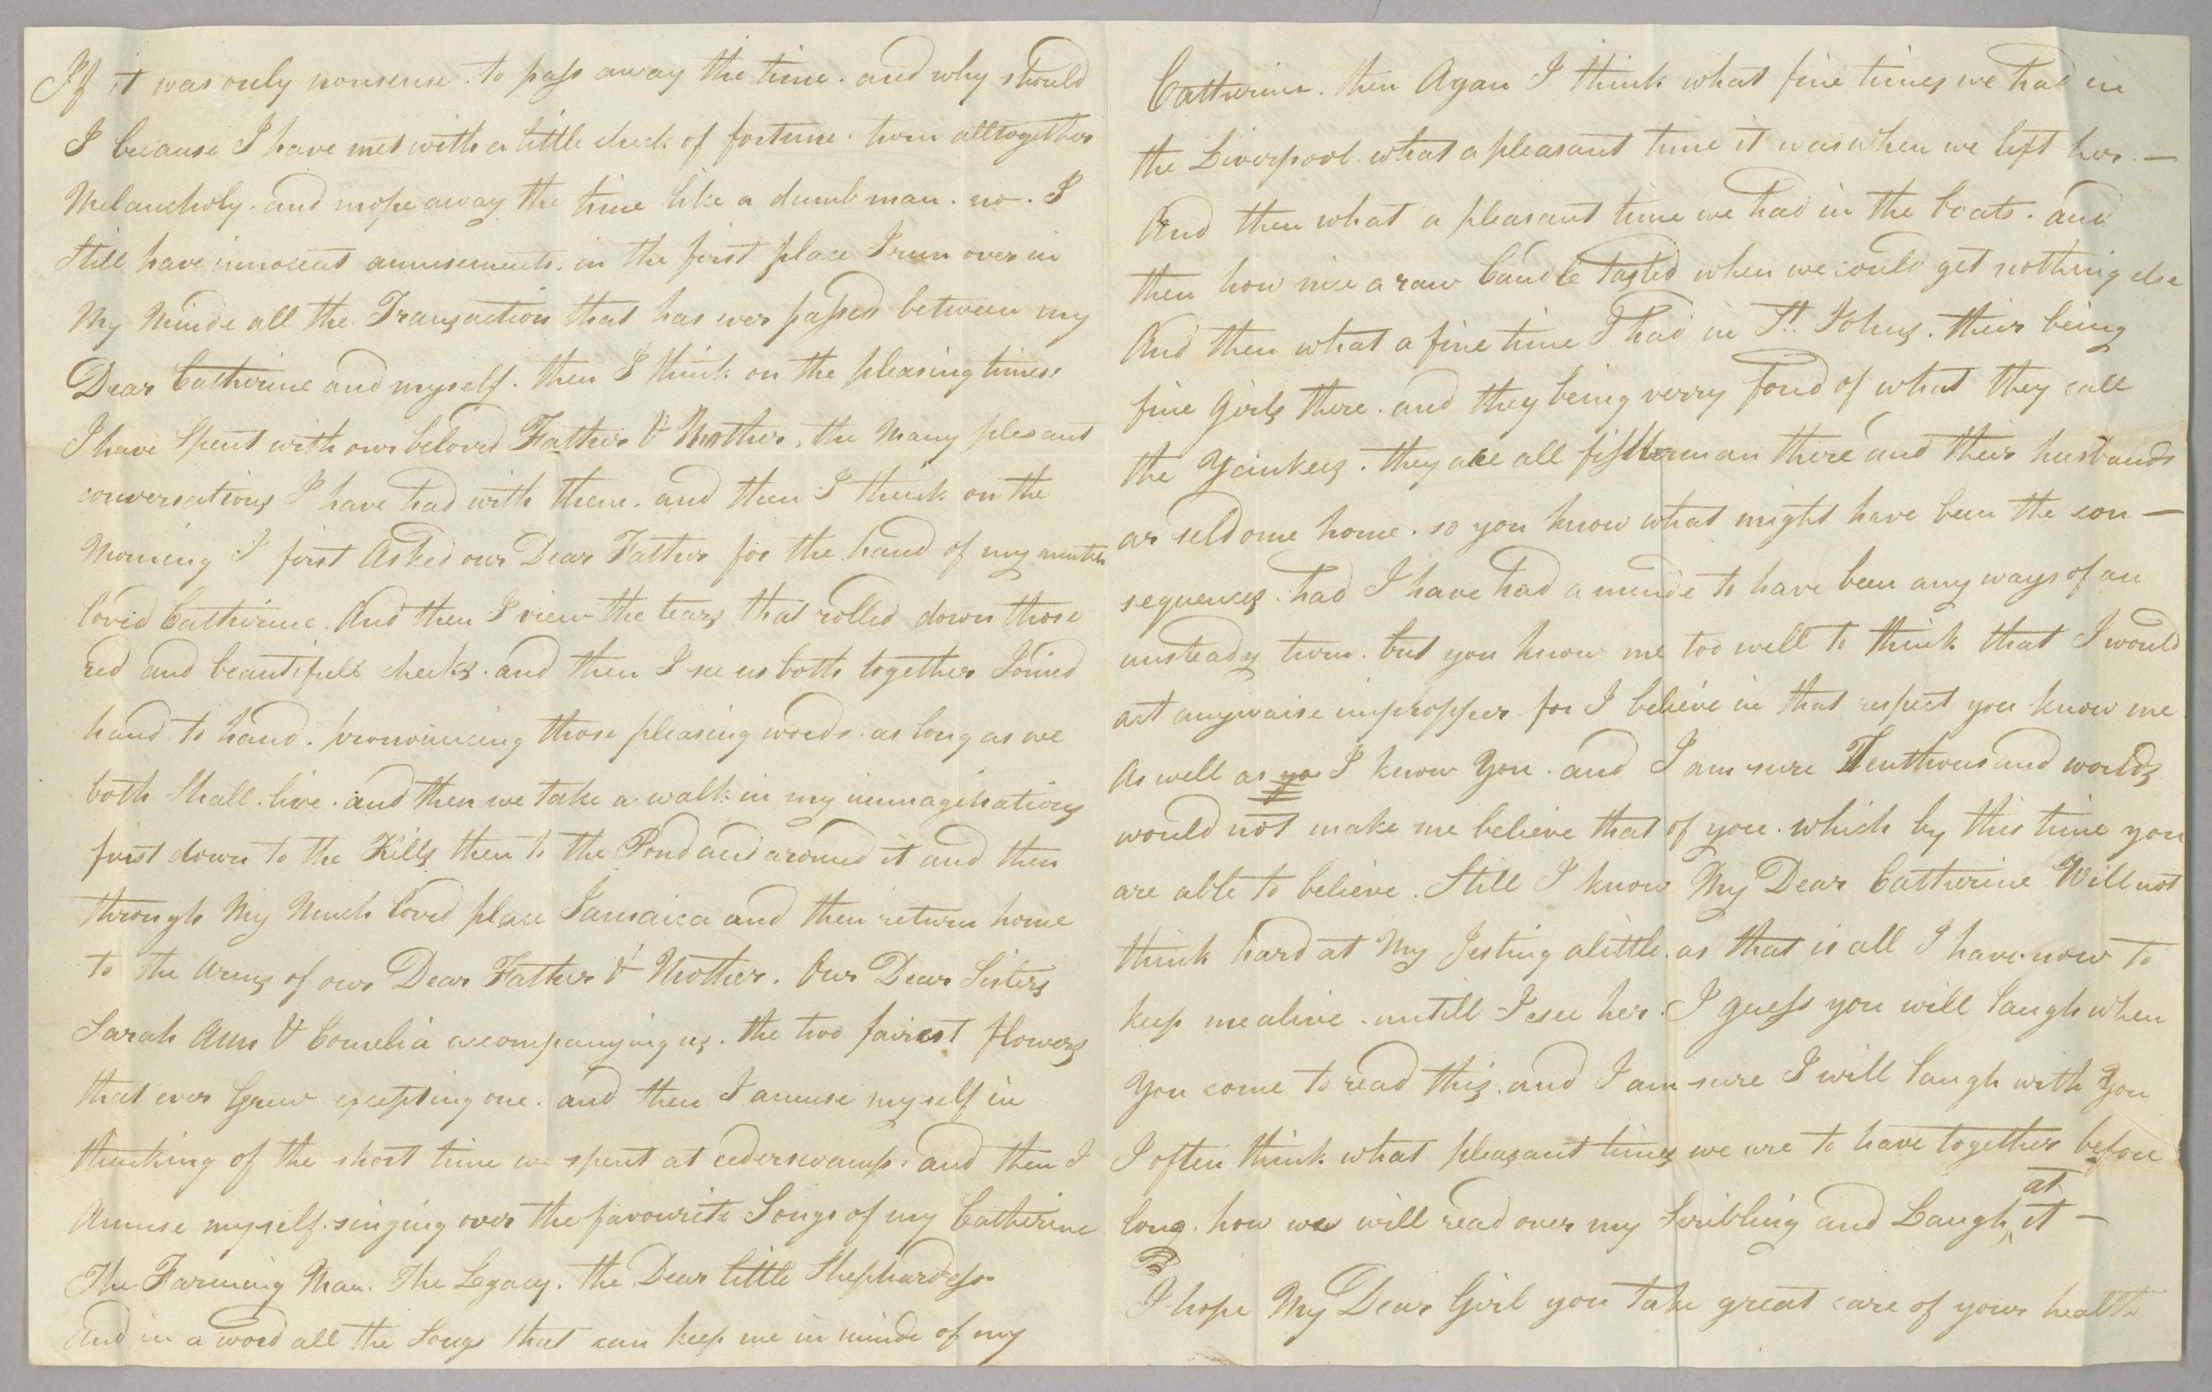 If it was only nonsense. to pass away the time. and why should
I because I have met with a little check of fortune. turn alltogether
Melancholy. and mope away the time like a dumb man. no. I
Still have innocent amusements. in the first place I run over in
My Minde all the Transactions that has ever passed between my
Dear Catherine and myself. then I think on the pleasing times
I have Spent with our beloved Father & Mother, the Many plesant
conversations I have had with them. and then I think on the
Morning I first Asked our Dear Father for the hand of my much
loved Catherine. And then I view the tears that rolled down those
red and beautifull cheeks. and then I see us both together Joined
hand to hand. pronouncing those pleasing words. as long as we
both Shall live. and then we take a walk in my immaginations
first down to the Kills then to the Pond and around it and then
through My Much loved place Jamaica and then return home
to the Arms of our Dear Father & Mother. Our Dear Sisters
Sarah Ann & Cornelia accompanying us. the two fairest flowers
that ever Grew excepting one. and then I amuse myself in
thinking of the short time we spent at cederswamp. and then I
Amuse myself. singing over the favourite Songs of my Catherine
The Farming Man. The Legacy. the Dear little Shephardess.
And in a word all the Songs that can keep me in minde of my
Catherine. then Agan I think what fine times we had in
the Liverpool. what a pleasant time it was when we left her. —
And then what a pleasant time we had in the boats. and
then how nice a raw Candle tasted when we could get nothing else
And then what a fine time I had in St. Johns. their being
fine Girls there. and they being verry fond of what they call
the Yankees. they are all fisherman there and their husbands
ar seldome home. so you know what might have been the con —
sequences. had I have had a minde to have been any ways of an
unsteady turn. but you know me too well to think that I would
act anywaise impropper. for I believe in that respect you know me
As well as yo I know You. and I am sure Tenthousand worlds
would not make me believe that of you. which by this time you
are able to believe. Still I know My Dear Catherine Will not
think hard at My Jesting alittle. as that is all I have now to
keep me alive. untill I see her. I guess you will laugh when
You come to read this. and I am sure I will laugh with You
I often think what pleasant times we are to have together before
long. how we will read over my Scribling and Laugh at it —
I hope My Dear Girl you take great care of your health